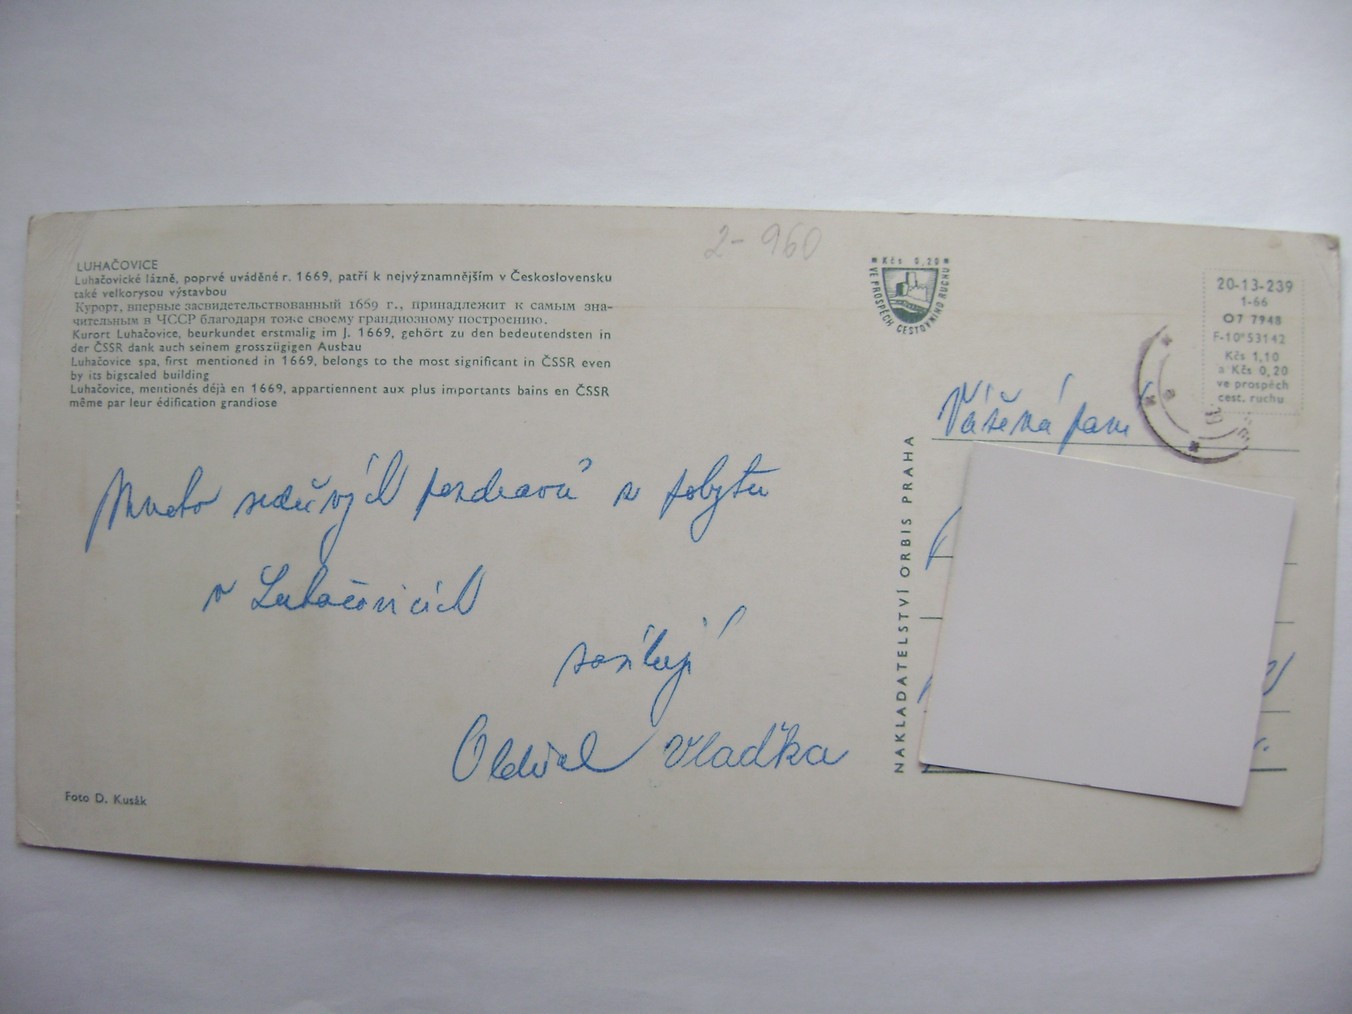 2-960
LUHAČOVICE
Luhačovické lázně, poprvé uváděné r. 1669, patří k nejvýznamnějším v Československu
také velkorysou výstavbou
Курорт, впервые засвидетельствованный 1669 г., принадлежит к самым зна-
чительным в ЧССР благодаря тоже своему грандиозному построению.
Kurort Luhačovice, beurkundet erstmalig im J. 1669, gehört zu den bedeutendsten in
der ČSSR dank auch seinem grosszügigen Ausbau
Luhačovice spa, first mentioned in 1669, belongs to the most significant in ČSSR even
by its bigscaled building
Luhačovice, mentionés déjà en 1669, appartiennent aux plus importants bains en ČSSR
même par leur édification grandiose
Mnoho srdečných pozdravů z pobytu
v Luhačovicích
zasílají
Oldřich Vlaďka
Foto D. Kusák
Kčs 0,20
VE PROSPĚCH CESTOVNÍHO RUCHU
NAKLADATELSTVÍ ORBIS PRAHA
20-13-239
1-66
O7 7948
F-10*53142
Kčs 1,10
a Kčs 0,20
ve prospěch
cest. ruchu
Vážená paní